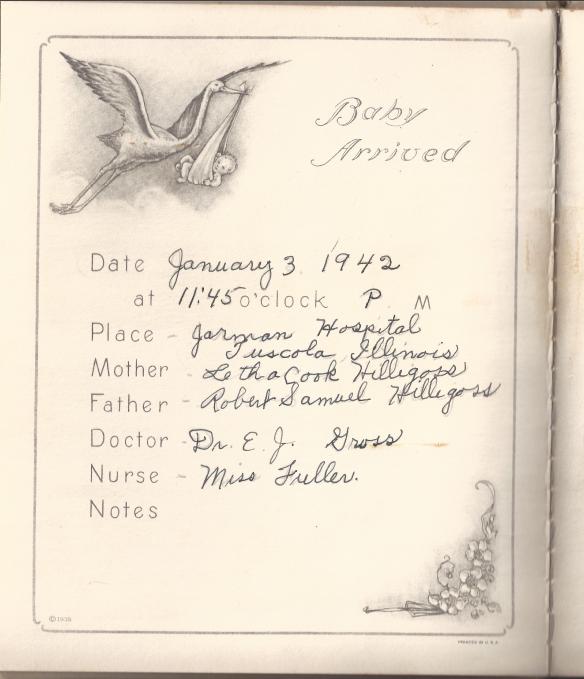 Baby
Arrived
Date January 3 1942
at 11:45 o'clock P M
Place - Jarman Hospital
Tuscola, Illinois
Mother - Letha Cook Hilligoss
Father - Robert Samuel Hilligoss
Doctor - Dr. E. J. Gross
Nurse - Miss Fuller.
Notes
©1938
PRINTED IN U.S.A.